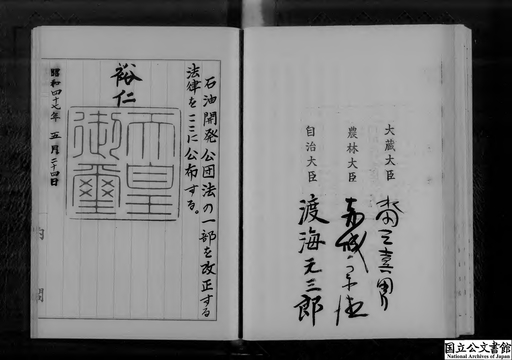 大蔵大臣 水田三喜男
農林大臣 赤城宗徳
自治大臣 渡海元三郎
石油開発公団法の一部を改正する
法律をここに公布する。
裕仁
天皇
御璽
昭和四十七年五月二十四日
内閣
国立公文書館
National Archives of Japan